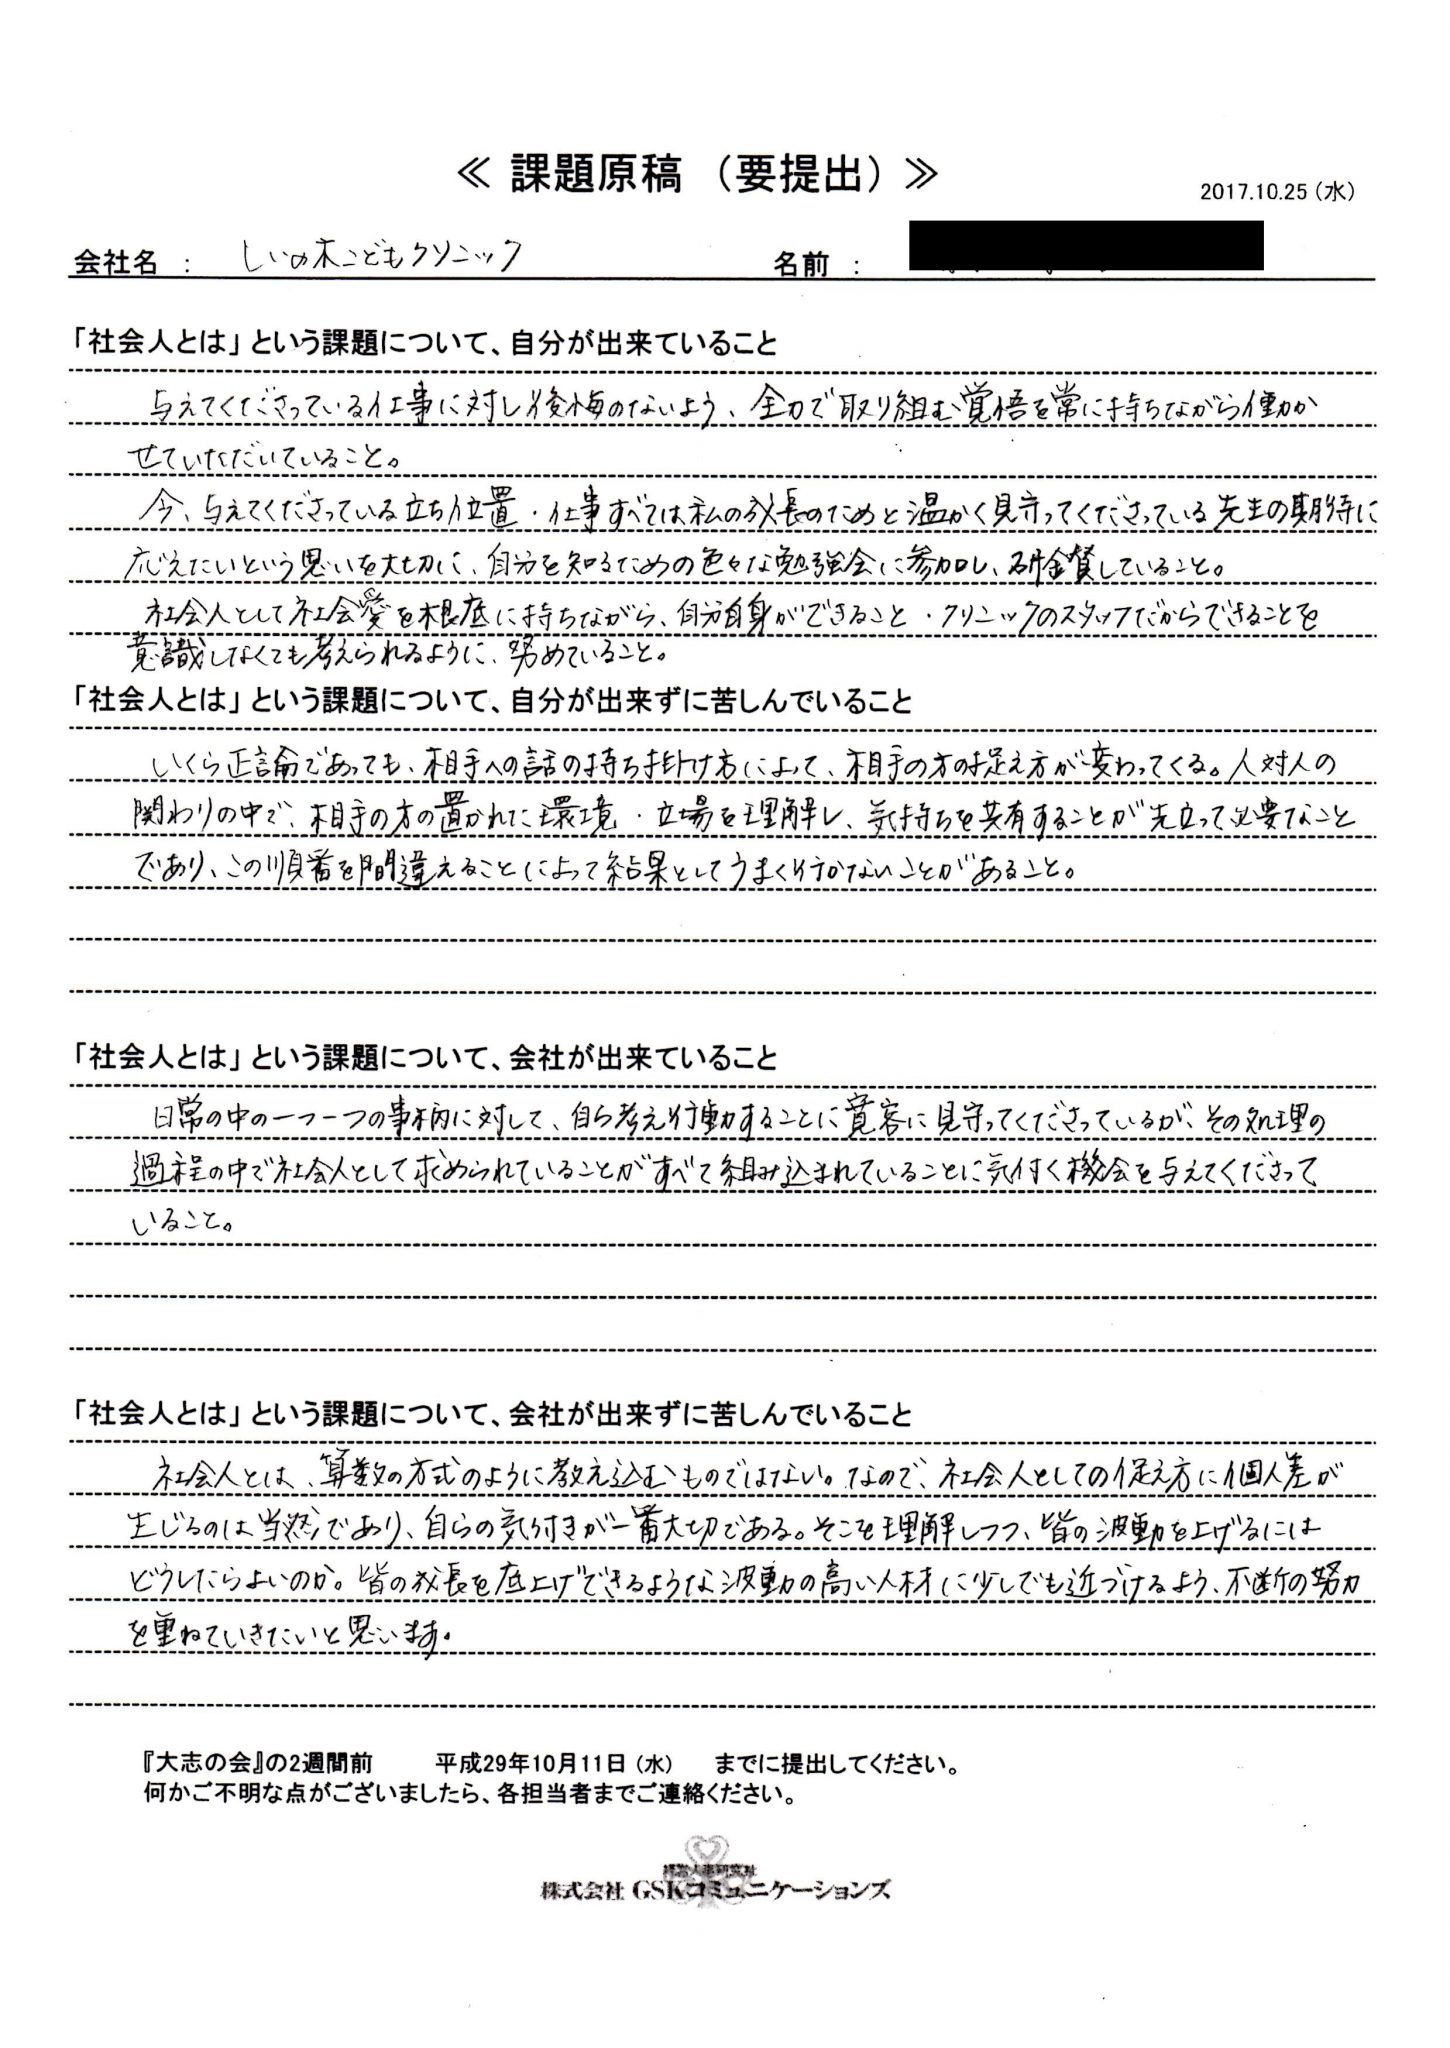 ≪ 課題原稿 （要提出）≫
2017.10.25（水）
会社名 ： しいの木こどもクリニック 名前 ：
「社会人とは」という課題について、自分が出来ていること
与えてくださっている仕事に対し後悔のないよう、全力で取り組む覚悟を常に持ちながら働か
せていただいていること。
今、与えてくださっている立ち位置・仕事すべては私の成長のためと温かく見守ってくださっている先生の期待に
応えたいという思いを大切に、自分を知るための色々な勉強会に参加し、研鑽していること。
社会人として社会愛を根底に持ちながら、自分自身ができること・クリニックのスタッフだからできることを
意識しなくても考えられるように、努めていること。
「社会人とは」という課題について、自分が出来ずに苦しんでいること
いくら正論であっても、相手への話の持ち掛け方によって、相手の方の捉え方が変わってくる。人対人の
関わりの中で、相手の方の置かれた環境・立場を理解し、気持ちを共有することが先立って必要なこと
であり、この順番を間違えることによって結果としてうまく行かないことがあること。
「社会人とは」という課題について、会社が出来ていること
日常の中の一つ一つの事柄に対して、自ら考え行動することに寛容に見守ってくださっているが、その処理の
過程の中で社会人として求められていることがすべて組み込まれていることに気付く機会を与えてくださって
いること。
「社会人とは」という課題について、会社が出来ずに苦しんでいること
社会人とは、算数の方式のように教え込むものではない。なので、社会人としての捉え方に個人差が
生じるのは当然であり、自らの気付きが一番大切である。そこを理解しつつ、皆の波動を上げるには
どうしたらよいのか。皆の成長を底上げできるような波動の高い人材に少しでも近づけるよう、不断の努力
を重ねていきたいと思います。
『大志の会』の2週間前 平成29年10月11日（水） までに提出してください。
何かご不明な点がございましたら、各担当者までご連絡ください。
株式会社 GSKコミュニケーションズ